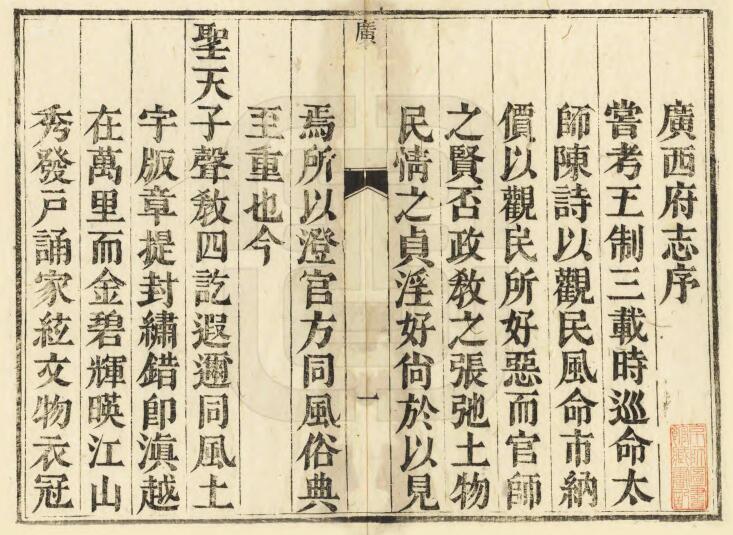 廣西府志序
嘗考王制三載時巡命太
師陳詩以觀民風命市納
價以觀民所好惡而官師
之賢否政教之張弛土物
民情之貞淫好尙於以見
廣
一
焉所以澄官方同風俗典
至重也今
聖天子聲敎四訖遐邇同風土
宇版章提封繡錯卽滇越
在萬里而金碧輝暎江山
秀發戶誦家絃文物衣冠